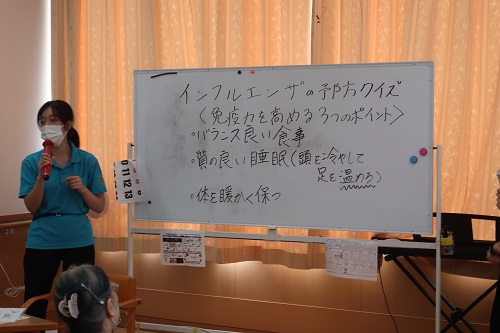 インフルエンザの予防クイズ
〈免疫力を高める3つのポイント〉
・バランス良い食事
・質の良い睡眠(頭を冷やして
足を温める)
・体を暖かく保つ
11 12 13